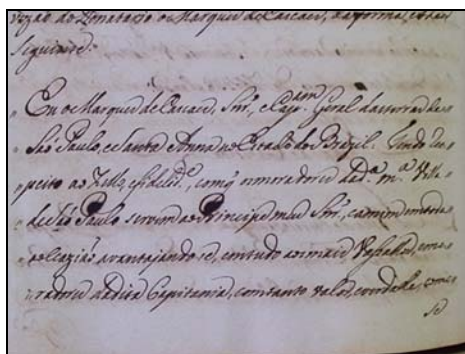 do Donatario o Marquez de Cascaes, na forma
seguinte:
Eu o Marquez de Cascaes, Snr., e Capam. Geral das terras de
São Paulo, e Santa Anna no Estado do Brazil. Tendo res
peito ao Zello, e fidelide., com q os moradores da da. ma. Villa
de São Paulo servem ao Principe meu Snr., e a mim em todas
as occazioēs avantajando se, em tudo aos mais Vassalos, e mo
radores da dita Capitania, com tanto valor, e verdade, como
se